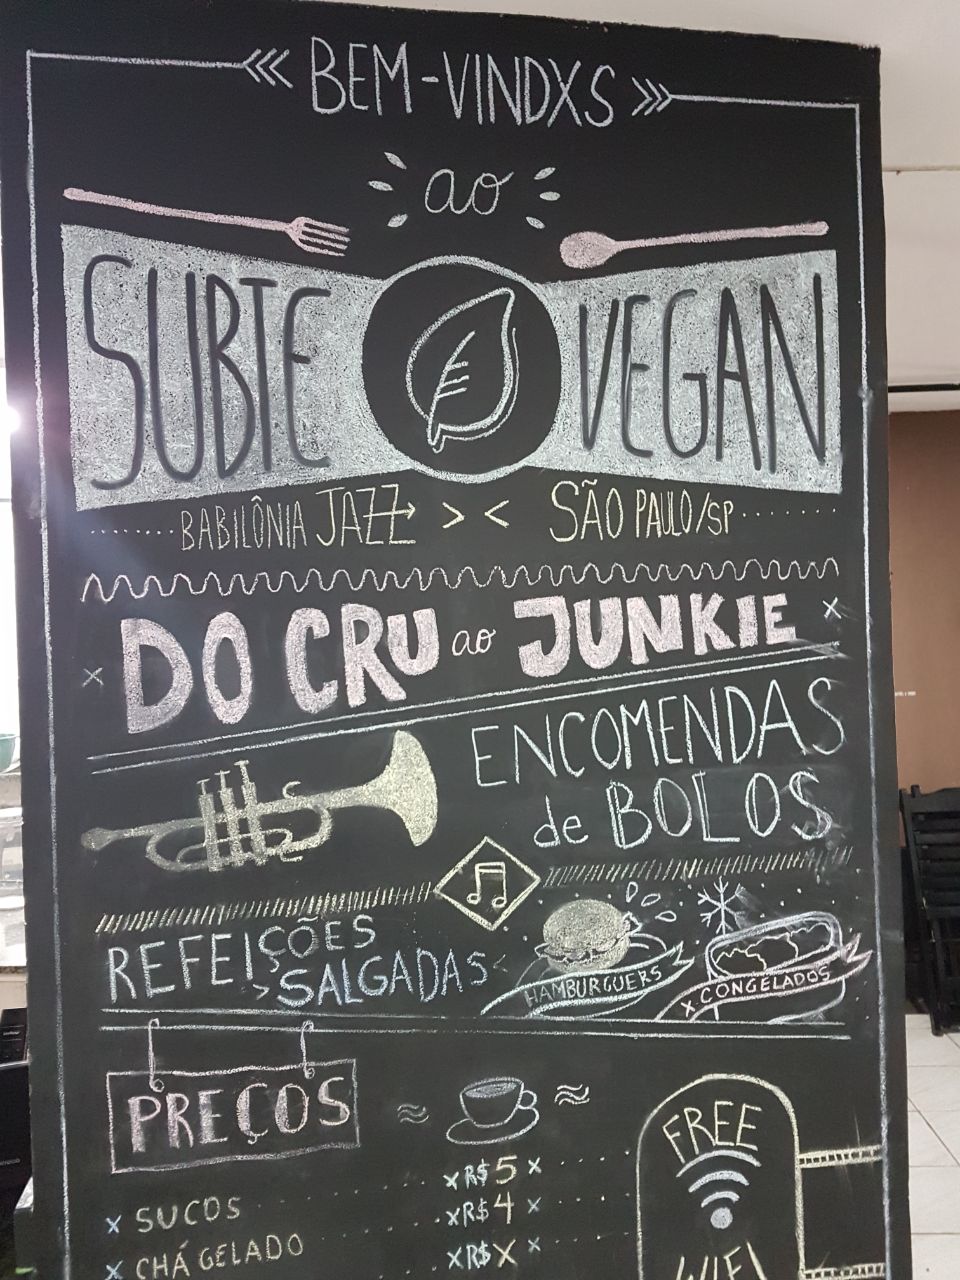 BEM-VINDXS
ao
SUBTE VEGAN
BABILÔNIA JAZZ > < SÃO PAULO/SP
DO CRU ao JUNKIE
ENCOMENDAS
de BOLOS
REFEIÇÕES
SALGADAS
HAMBURGUERS
CONGELADOS
PREÇOS
FREE
WIFI
x R$ 5 x
x SUCOS x R$ 4 x
x CHÁ GELADO x R$ X x